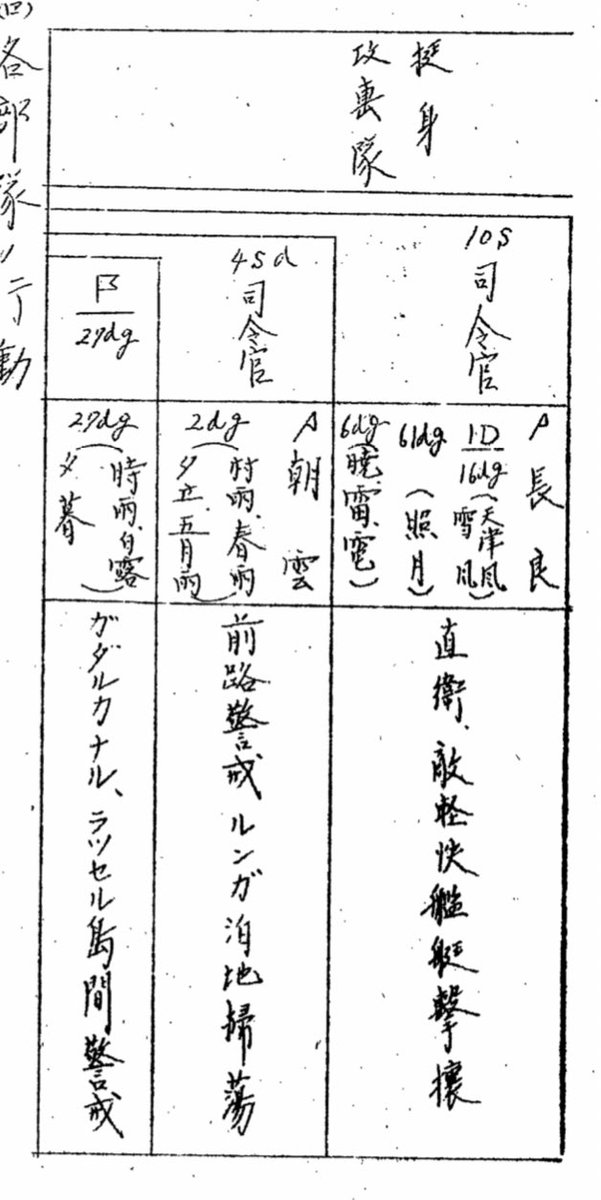 挺身
攻撃隊
10S
司令官
長良
1D
16dg (天津風
雪風)
61dg (照月)
6dg (暁、雷、電)
直衛、敵軽快艦艇撃攘
4Sd
司令官
朝雲
2dg (村雨、春雨
夕立、五月雨)
前路警戒 ルンガ泊地掃蕩
27dg
27dg (時雨、白露
夕暮)
ガダルカナル、ラツセル島間警戒
(ロ) 各部隊ノ行動